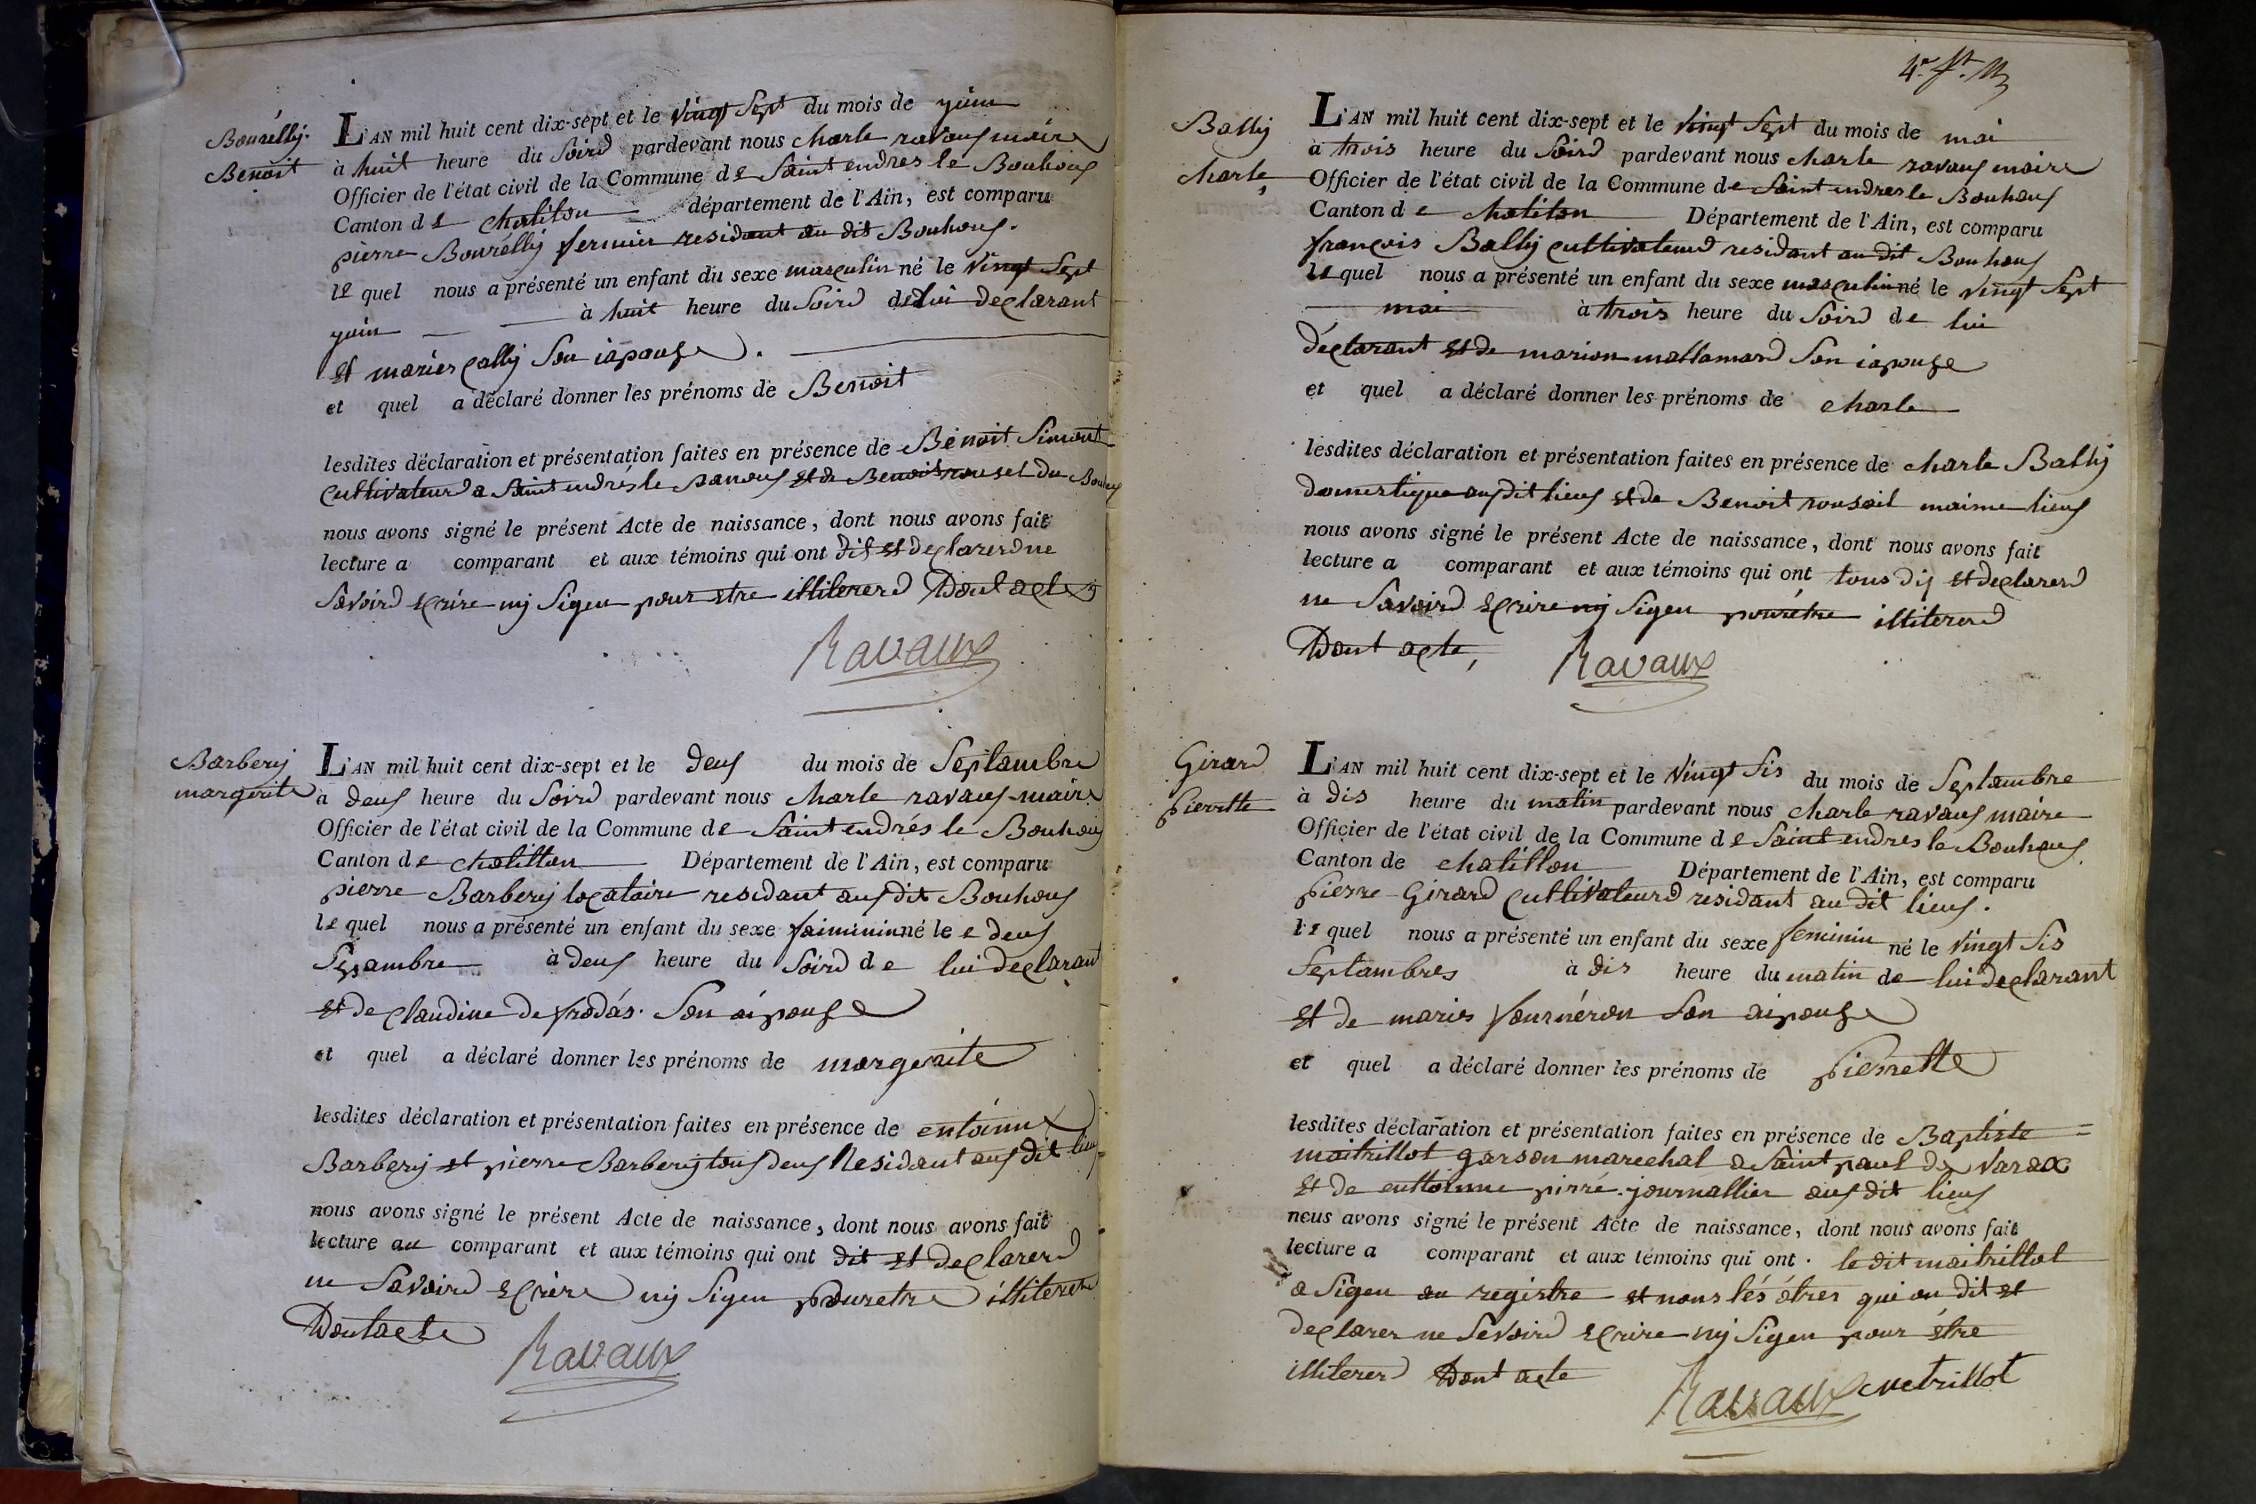 Bourélly
Benoit
L'AN mil huit cent dix-sept et le vingt Sept du mois de yuin
à huit heure du Soird pardevant nous charle ravaus maire
Officier de l'état civil de la Commune de Saint endres le Bouhous
Canton de chatilon département de l'Ain, est comparu
pierre Bourélly fermier residant au dit Bouhous.
le quel nous a présenté un enfant du sexe masculin né le vingt Sept
yuin à huit heure du Soird de lui declarant
et marier Son iapouse.
et quel a déclaré donner les prénoms de Benoit
lesdites déclaration et présentation faites en présence de Benoit Simont
cultivateurd a Saint endrés le panous et de Benoit rousel du
nous avons signé le présent Acte de naissance, dont nous avons fait
lecture a comparant et aux témoins qui ont dit et declarerd ne
Savoird ecrire nij Sigeu pour etre illitererd Dont acte
Ravaux
Barberij
margerite
L'AN mil huit cent dix-sept et le deus du mois de Septambre
à deus heure du Soird pardevant nous charle ravaus maire
Officier de l'état civil de la Commune de Saint endrés le Bouhous
Canton de chatillon Département de l'Ain, est comparu
pierre Barberij locataire residant aus dit Bouhous
le quel nous a présenté un enfant du sexe faiminin né le e deus
Sepambre à deus heure du Soird de lui declarant
et de claudine de frodás Son aipouse
et quel a déclaré donner les prénoms de margeraite
lesdites déclaration et présentation faites en présence de entoinne
Barberij et pierre Barberij tous deus Residant aus dit lieus
nous avons signé le présent Acte de naissance, dont nous avons fait
lecture au comparant et aux témoins qui ont dit et declarerd
ne Savoird ecrire nij Sigeu pouretre illitererd
Dont acte
Ravaux
4.e
Ballij
charle
L'AN mil huit cent dix-sept et le vingt Sept du mois de mai
à trois heure du Soird pardevant nous charle ravaus maire
Officier de l'état civil de la Commune de Saint endres le Bouhous
Canton de chatilon Département de l'Ain, est comparu
françois Ballij cultivateurd residant au dit Bouhous
le quel nous a présenté un enfant du sexe masculin né le vingt Sept
mai à trois heure du Soird de lui
déclarant et de marion mallamard Son iapouse
et quel a déclaré donner les prénoms de charle
lesdites déclaration et présentation faites en présence de charle Ballij
domestique aus dit lieus et de Benoit rousail maime lieus
nous avons signé le présent Acte de naissance, dont nous avons fait
lecture a comparant et aux témoins qui ont tous dij et declarerd
ne Savoird ecrire nij Sigeu pourétre illitererd
Dont acte,
Ravaux
Girard
pierrette
L'AN mil huit cent dix-sept et le vingt Sis du mois de Septambre
à dis heure du matin pardevant nous charle ravaus maire
Officier de l'état civil de la Commune de Saint endres le Bouhous
Canton de chatillon Département de l'Ain, est comparu
pierre Girard cultivateurd residant au dit lieus.
le quel nous a présenté un enfant du sexe feminin né le vingt Sis
Septambres à dis heure du matin de lui declarant
et de marier fournéron Son aipouse
et quel a déclaré donner les prénoms de pierrette
lesdites déclaration et présentation faites en présence de Baptiste
maitrillot garson marechal a Saint paul de varax
et de enttoinne pirré journallier aus dit lieus
nous avons signé le présent Acte de naissance, dont nous avons fait
lecture a comparant et aux témoins qui ont le dit maitrillot
a Sigeu au registre et nous lés ótres qui on dit et
declarer ne Sevoird ecrire nij Sigeu pour étre
illitererd Dont acte
Ravaux metrillot